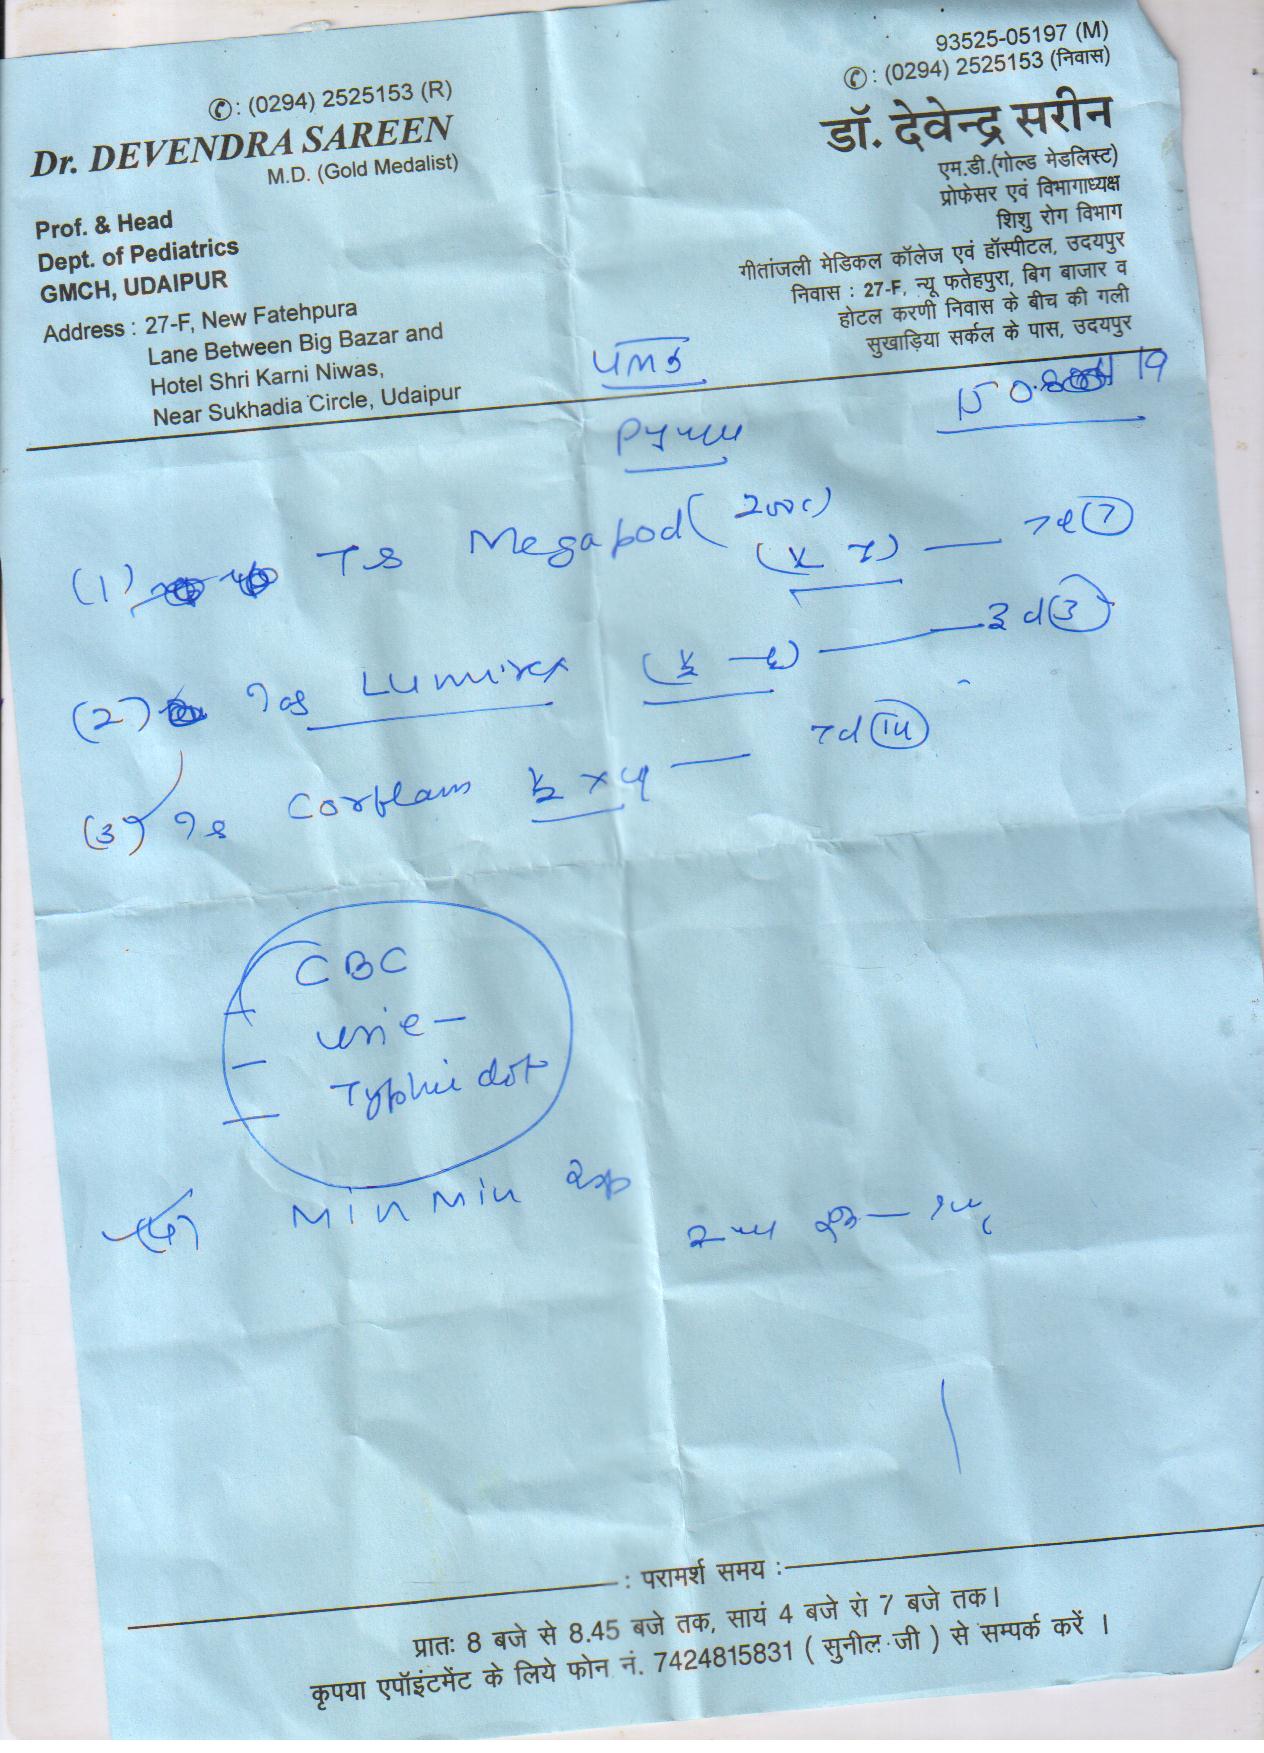 ✆: (0294) 2525153 (R)
Dr. DEVENDRA SAREEN
M.D. (Gold Medalist)
Prof. & Head
Dept. of Pediatrics
GMCH, UDAIPUR
Address : 27-F, New Fatehpura
Lane Between Big Bazar and
Hotel Shri Karni Niwas,
Near Sukhadia Circle, Udaipur
93525-05197 (M)
✆: (0294) 2525153 (निवास)
डॉ. देवेन्द्र सरीन
एम.डी.(गोल्ड मेडलिस्ट)
प्रोफेसर एवं विभागाध्यक्ष
शिशु रोग विभाग
गीतांजली मेडिकल कॉलेज एवं हॉस्पीटल, उदयपुर
निवास : 27-F, न्यू फतेहपुरा, बिग बाजार व
होटल करणी निवास के बीच की गली
सुखाड़िया सर्कल के पास, उदयपुर
19
(1) Megapod (200) 7d (7)
(2) Lumirex 3d (3)
(3) Corflam ½ x 7d (14)
CBC
Typhi dot
Min Min
: परामर्श समय :
प्रातः 8 बजे से 8.45 बजे तक, सायं 4 बजे रो 7 बजे तक।
कृपया एपॉइंटमेंट के लिये फोन नं. 7424815831 ( सुनील जी ) से सम्पर्क करें ।